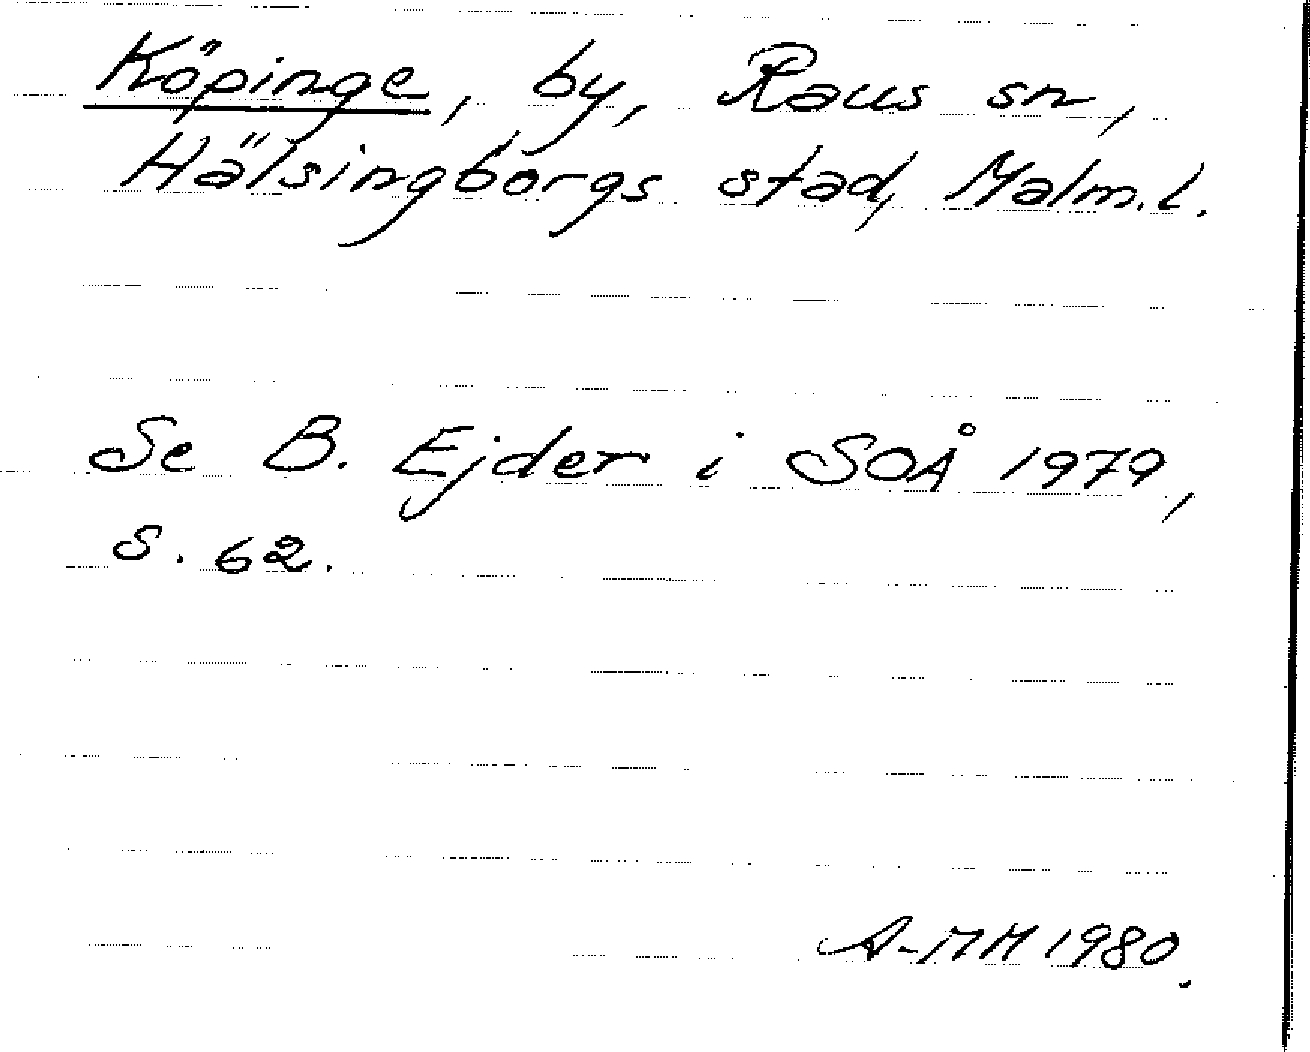 Köpinge, by, Raus sn,
Hälsingborgs stad, Malm.l.
Se B. Ejder i SOÅ 1979,
s. 62.
A-MH 1980.